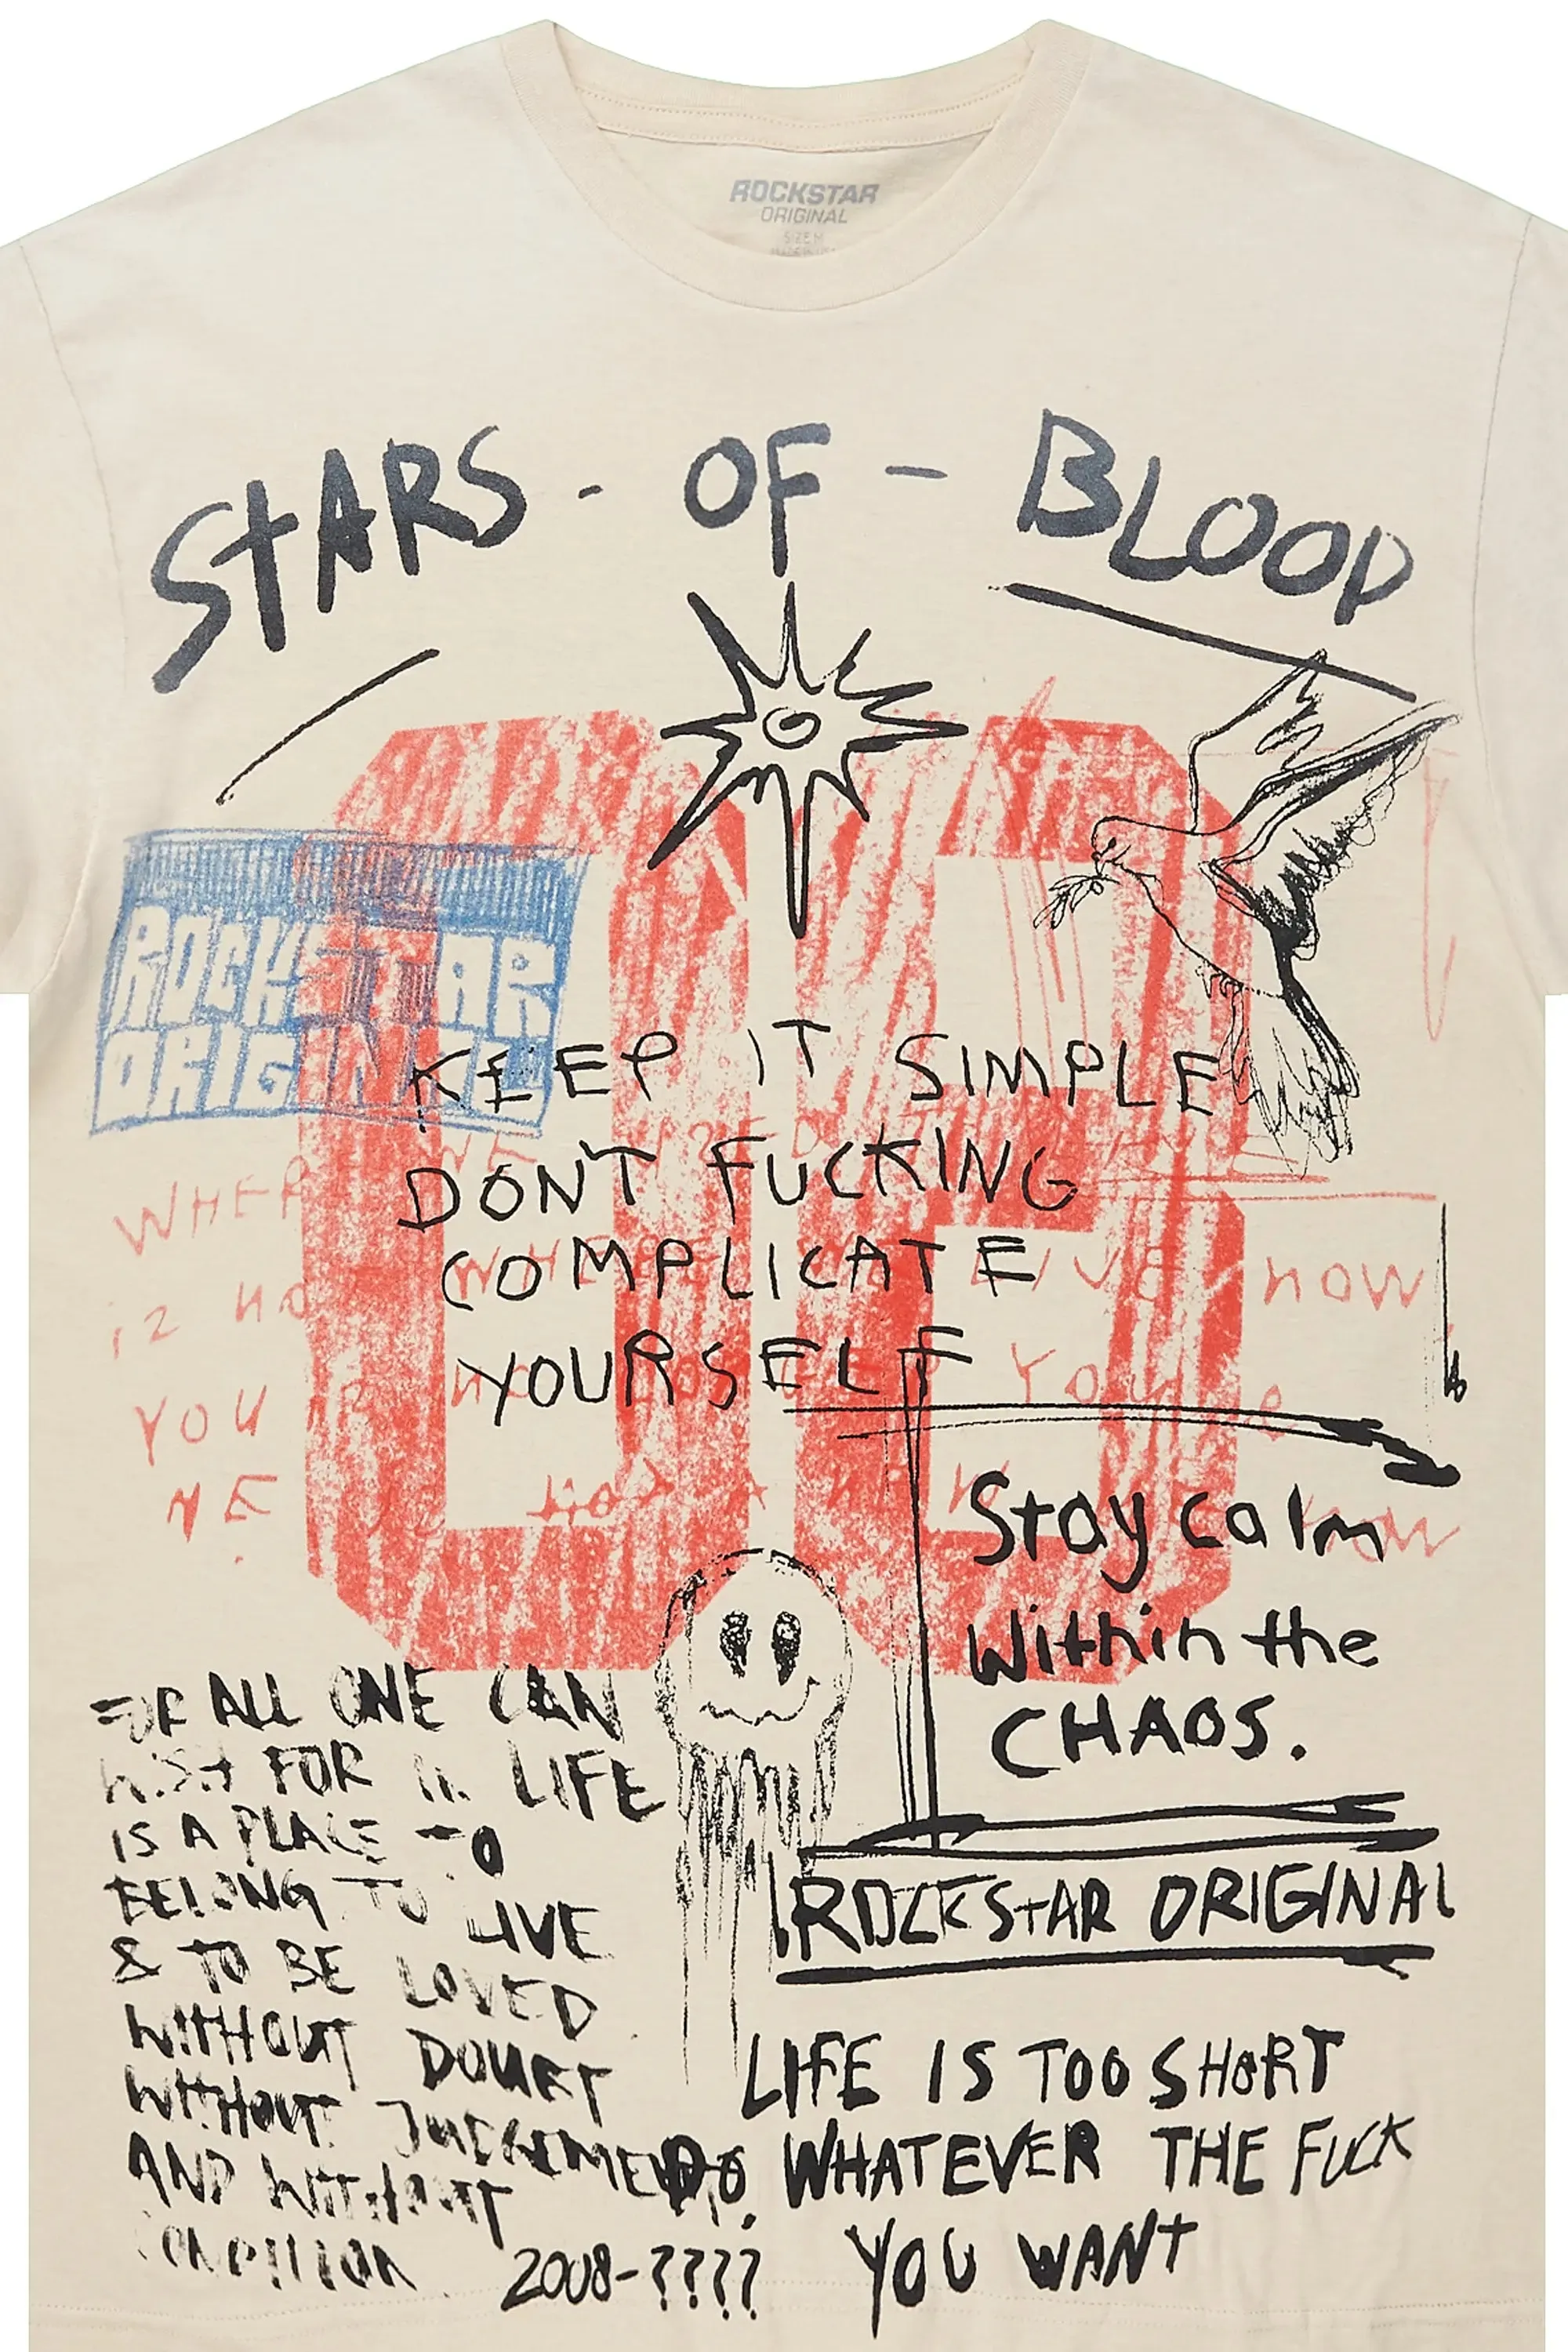 ROCKSTAR
ORIGINAL
SIZE M
STARS - OF - BLOOD
08
ROCKSTAR
ORIGINAL
KEEP IT SIMPLE
DON'T FUCKING
COMPLICATE
YOURSELF
WHERE WE
is no WHERE LIVE now
YOU YOU
NE NOT A NEW now
Stay calm
Within the
CHAOS.
ROCKSTAR ORIGINAL
FOR ALL ONE CAN
WISH FOR IN LIFE
IS A PLACE TO
BELONG TO LIVE
& TO BE LOVED
WITHOUT DOUBT
WITHOUT JUDGEMENT
AND WITHOUT
CONDITION
2008-????
LIFE IS TOO SHORT
DO WHATEVER THE FUCK
YOU WANT